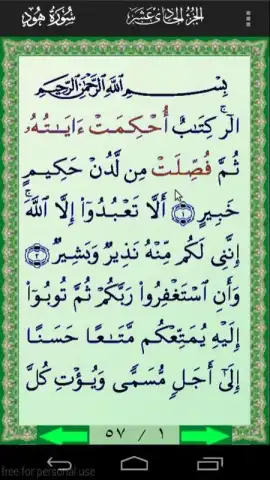 سُورَةُ هُودٍ الجزء الحادى عشر
بِسْمِ اللَّهِ الرَّحْمَٰنِ الرَّحِيمِ
الٓرۚ كِتَٰبٌ أُحْكِمَتْ ءَايَٰتُهُۥ
ثُمَّ فُصِّلَتْ مِن لَّدُنْ حَكِيمٍ
خَبِيرٍ ١ أَلَّا تَعْبُدُوٓا۟ إِلَّا ٱللَّهَۚ
إِنَّنِى لَكُم مِّنْهُ نَذِيرٌ وَبَشِيرٌ ٢
وَأَنِ ٱسْتَغْفِرُوا۟ رَبَّكُمْ ثُمَّ تُوبُوٓا۟
إِلَيْهِ يُمَتِّعْكُم مَّتَٰعًا حَسَنًا
إِلَىٰٓ أَجَلٍ مُّسَمًّى وَيُؤْتِ كُلَّ
٥٧ / ١
free for personal use